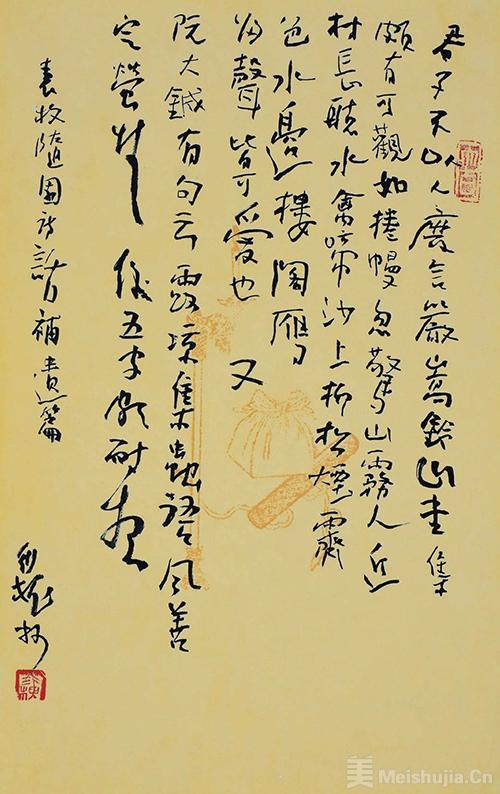 君子不以人廢言嚴嵩鈐山堂集
頗有可觀如捲幔忽驚山霧人近
村長聽水禽啼沙上柳松煙霽
色水邊樓閣雁
歸聲皆可愛也又
阮大鋮有句云露凉集蟲語風善
定螢情後五字頗耐想
袁枚隨園詩話補遺篇
美 Meishujia.Cn